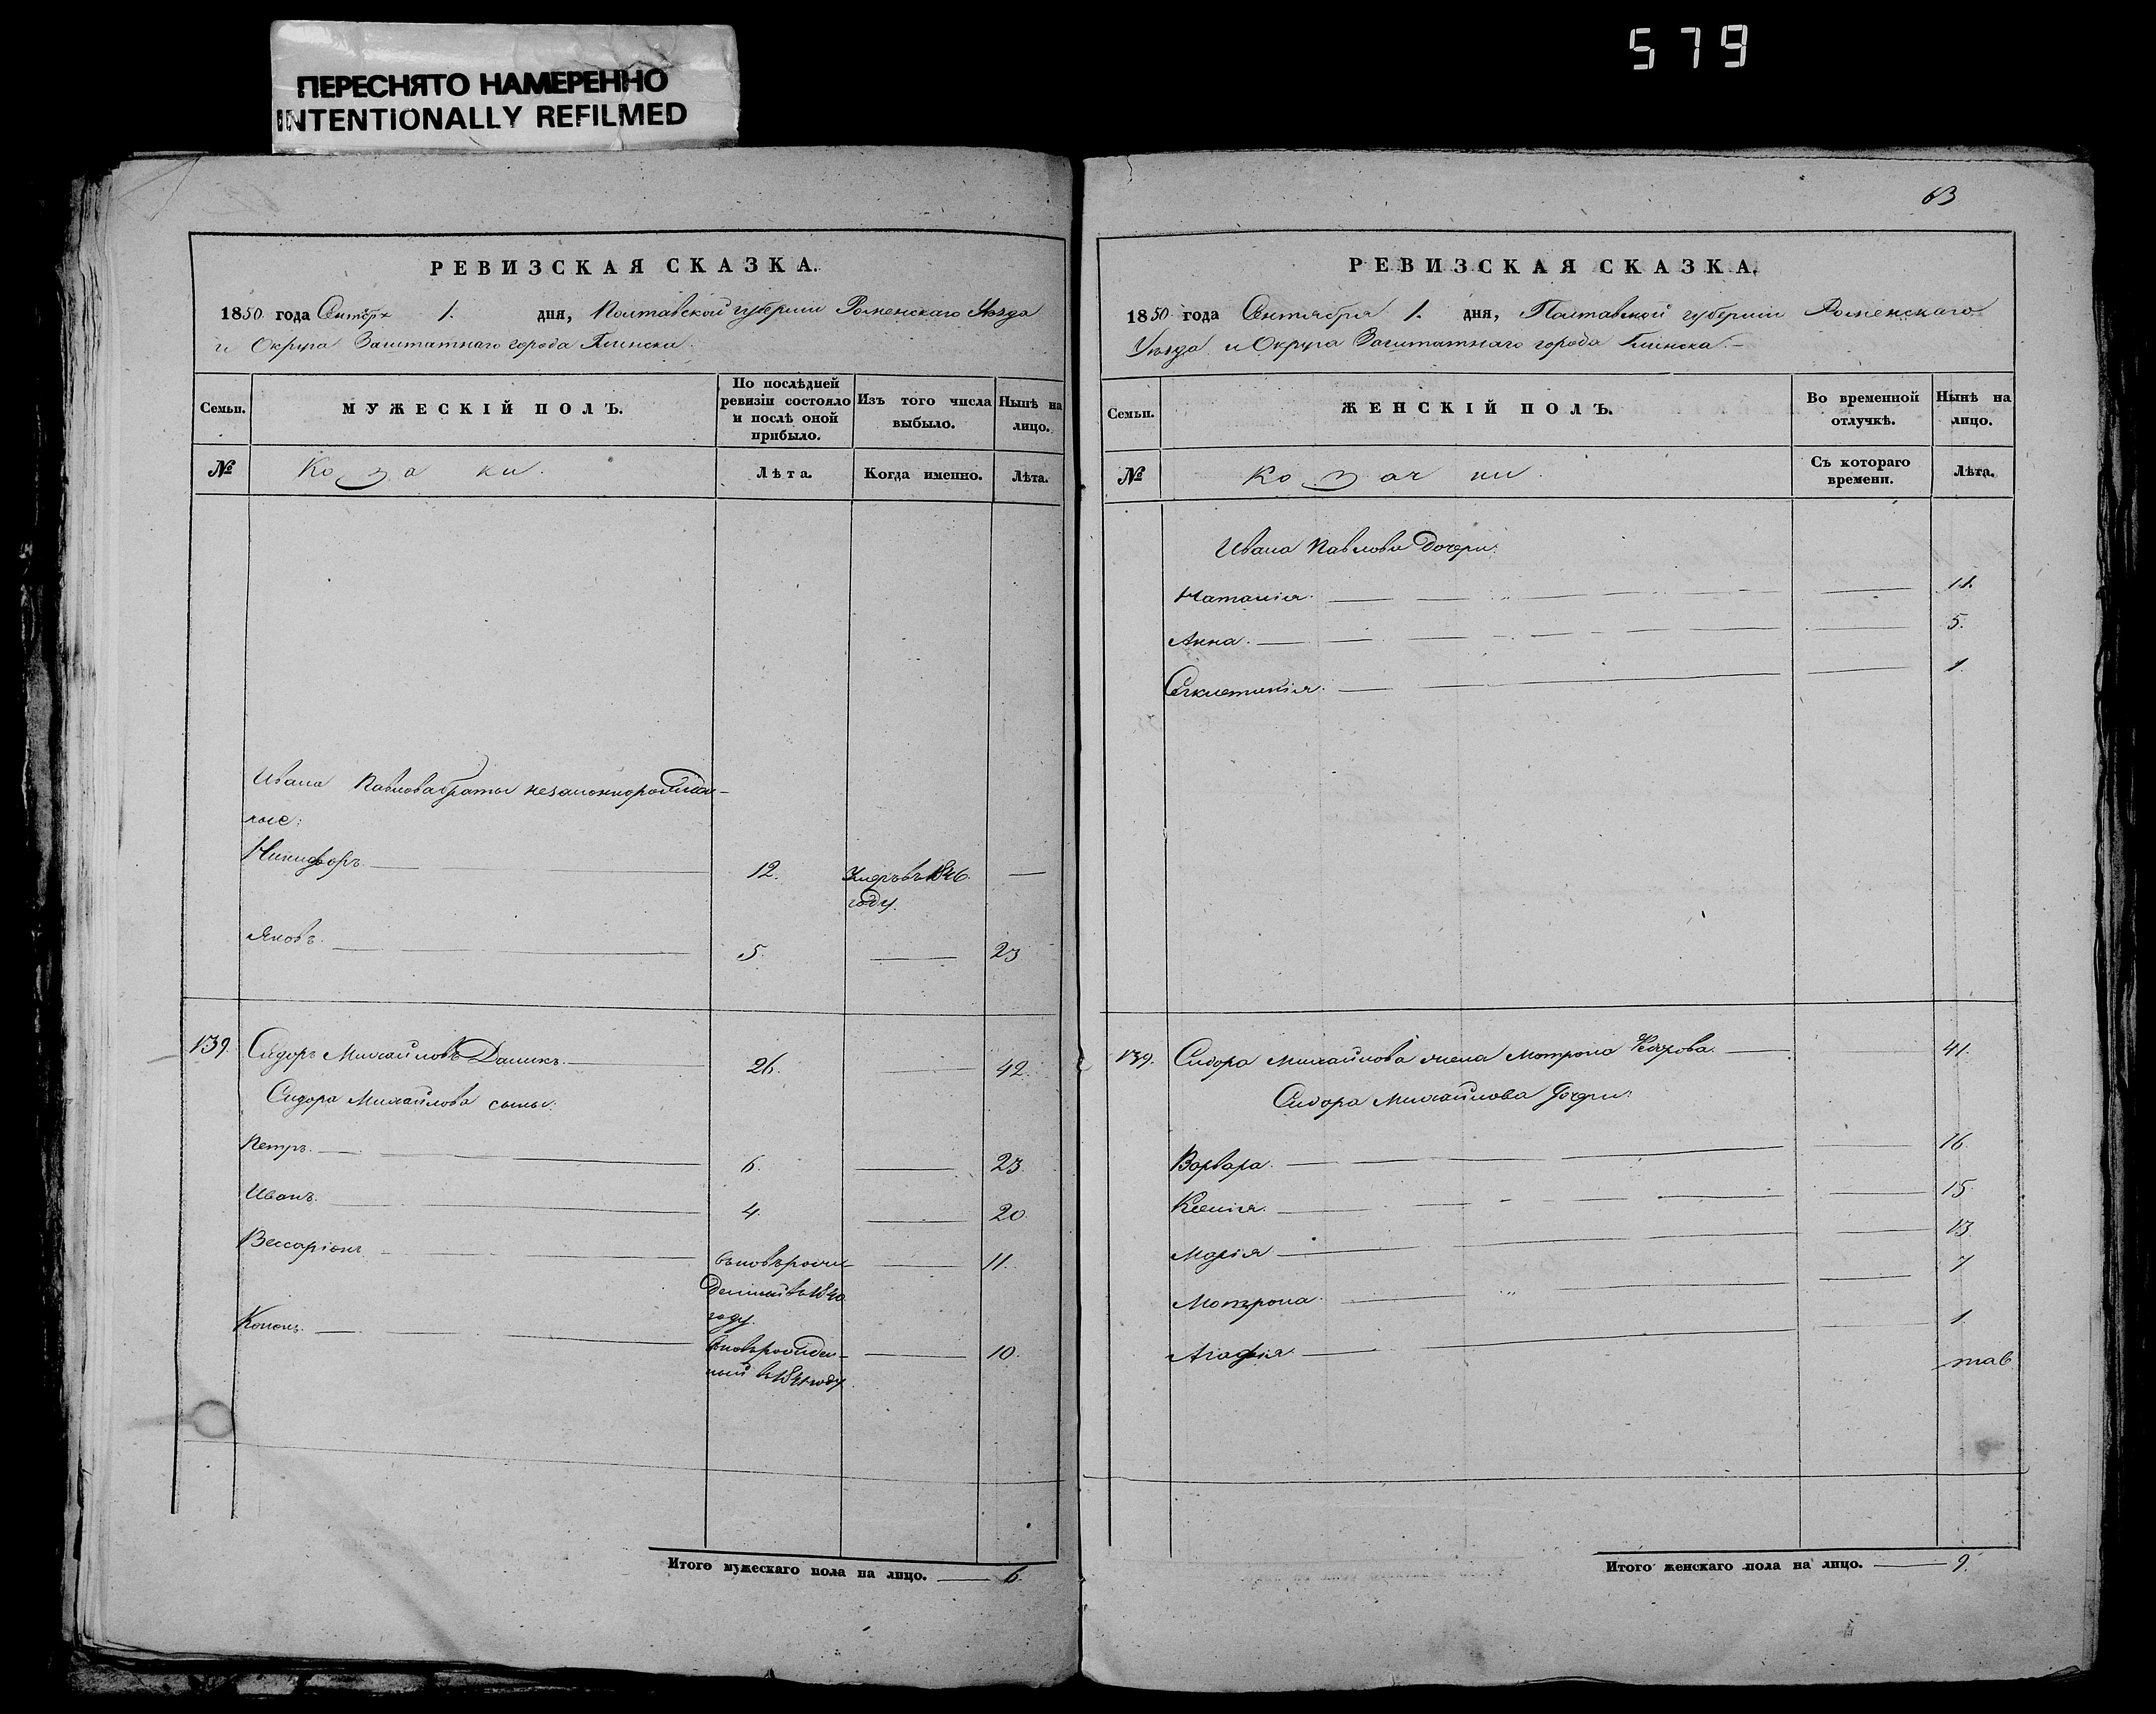 579
ПЕРЕСНЯТО НАМЕРЕННО
INTENTIONALLY REFILMED
РЕВИЗСКАЯ СКАЗКА.
1850 года Сентябр 1. дня, Полтавской губернии Роменскаго Уѣзда
и Округа Заштатнаго города Глинска.
Семьи.
МУЖЕСКІЙ ПОЛЪ.
По послѣдней
ревизіи состояло
и послѣ оной
прибыло.
Изъ того числа
выбыло.
Нынѣ на
лицо.
№
Козаки.
Лѣта.
Когда именно.
Лѣта.
Ивана Павлова браты незаконнорожден-
ные:
Никифоръ. 12. Умеръ въ 1846. —
году.
Яковъ. 5. — 23
139. Сидоръ Михайловъ Даникъ. 26. — 42.
Сидора Михайлова сыны:
Петръ. 6. — 23.
Иванъ. 4. — 20.
Вессаріонъ вновьрожд — 11.
денный в 1840
году.
Кононъ. вновьрожден- — 10.
ный в 1841 году
Итого мужескаго пола на лицо. — 6.
63
РЕВИЗСКАЯ СКАЗКА.
1850 года Сентября 1. дня, Полтавской губерніи Роменскаго
Уѣзда и Округа Заштатнаго города Глинска.
Семьи.
ЖЕНСКІЙ ПОЛЪ.
Во временной
отлучкѣ.
Нынѣ на
лицо.
№
Козачки.
Съ котораго
времени.
Лѣта.
Ивана Павлова дочери:
Наталія. — 11.
Анна. — 5.
Секлетикія. — 1.
139. Сидора Михайлова жена Мотрона — 41.
Сидора Михайлова дочери:
Варвара. — 16.
Ксенія. — 15.
Марія — 13
Мотрона. — 7
Агафія — 1
Итого женскаго пола на лицо. — 9.